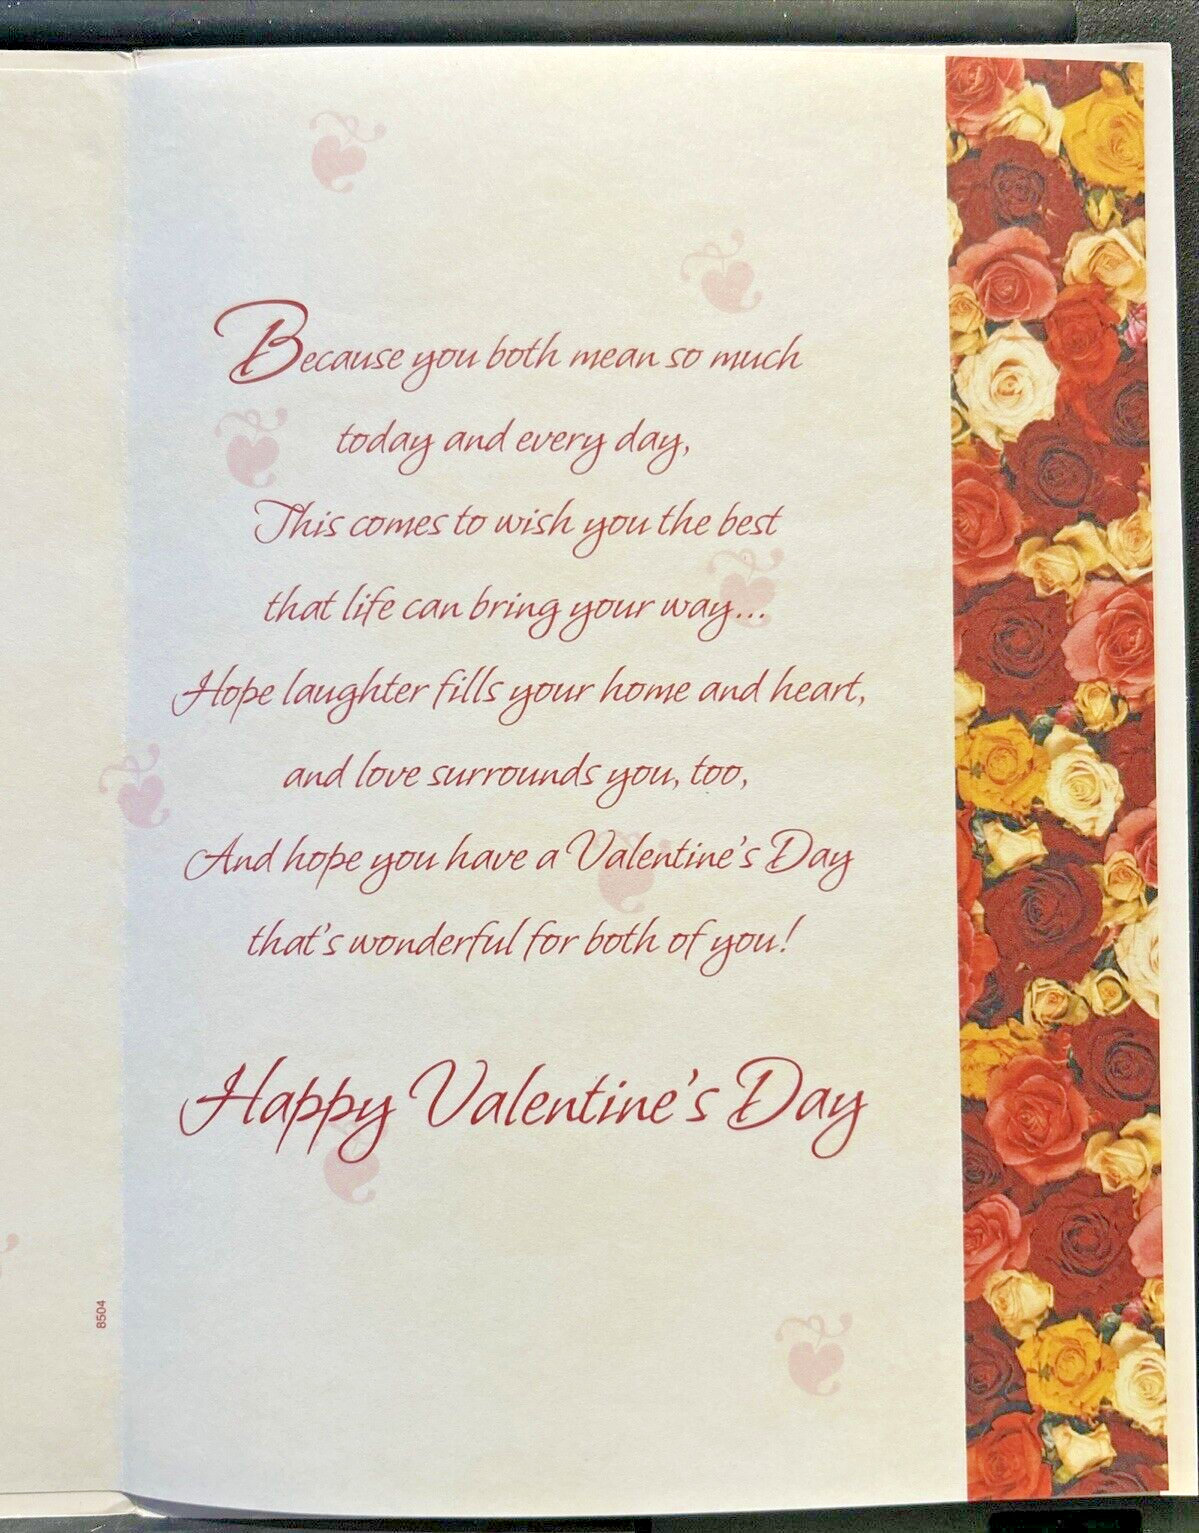 Because you both mean so much
today and every day,
This comes to wish you the best
that life can bring your way...
Hope laughter fills your home and heart,
and love surrounds you, too,
And hope you have a Valentine's Day
that's wonderful for both of you!
Happy Valentine's Day
8504